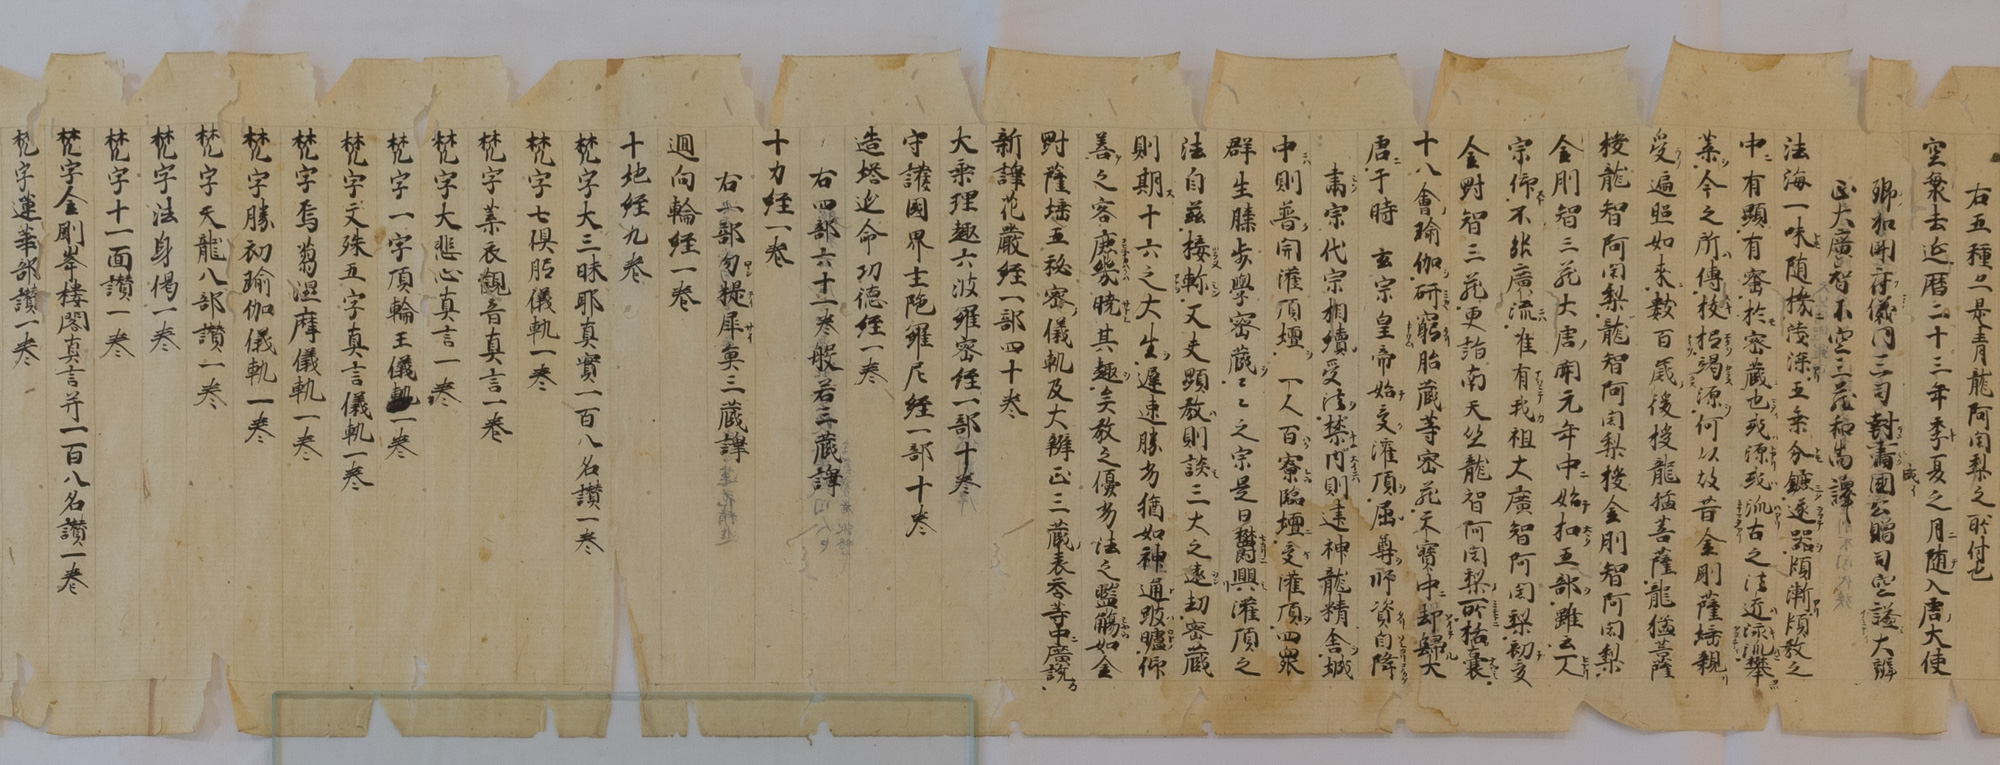 右五種亦是青龍阿闍梨之所付也
去延暦二十三年季夏之月随入唐大使
卿和開府儀同三司肅國公贈司空謚大辨
正大廣智不空三蔵和尚譯
法海一味随機浅深五乗分鑣逐器頓漸頓教之
中有顯有密於密蔵也或源或派古之法近泳流攀
葉今之所傳柀根竭源何以故昔金剛薩埵親
受遍照如来數百歳後授龍猛菩薩龍猛菩薩
授龍智阿闍梨龍智阿闍梨授金剛智阿闍梨
金剛智三蔵大唐開元年中始扣五部雖云人
宗仰不能廣流唯有我祖大廣智阿闍梨初受
金剛智三蔵更詣南天竺龍智阿闍梨所括嚢
十八會瑜伽研窮胎蔵等密蔵天寶中却歸大
唐于時 玄宗皇帝始受灌頂屈尊師資自降
肅宗代宗相續受法禁内則建神龍精舎城
中則普開灌頂壇一人百寮臨壇受灌頂四衆
群生膝歩學密蔵〻〻之宗是日欝興灌頂之
法自茲接軫又夫顯教則談三大之遠劫密蔵
則期十六之大生遅速勝劣猶如神通跛驢仰
善之客庶幾暁其趣矣教之優劣法之濫觴如金
剛薩埵五秘密儀軌及大辨正三蔵表荅等中廣説
新譯花嚴経一部四十巻
大乘理趣六波羅密経一部十巻
守護國界主陁羅尼経一部十巻
造塔延命功徳経一巻
右四部六十一巻般若三蔵譯
十力経一巻
右一部勿提犀魚三蔵譯
迴向輪経一巻
十地経九巻
梵字大三昧耶真實一百八名讃一巻
梵字七倶胝儀軌一巻
梵字葉衣觀音真言一巻
梵字大悲心真言一巻
梵字一字頂輪王儀軌一巻
梵字文殊五字真言儀軌一巻
梵字烏蒭澀摩儀軌一巻
梵字勝初瑜伽儀軌一巻
梵字天龍八部讃一巻
梵字法身偈一巻
梵字十一面讃一巻
梵字金剛峯樓閣真言并一百八名讃一巻
梵字蓮華部讃一巻